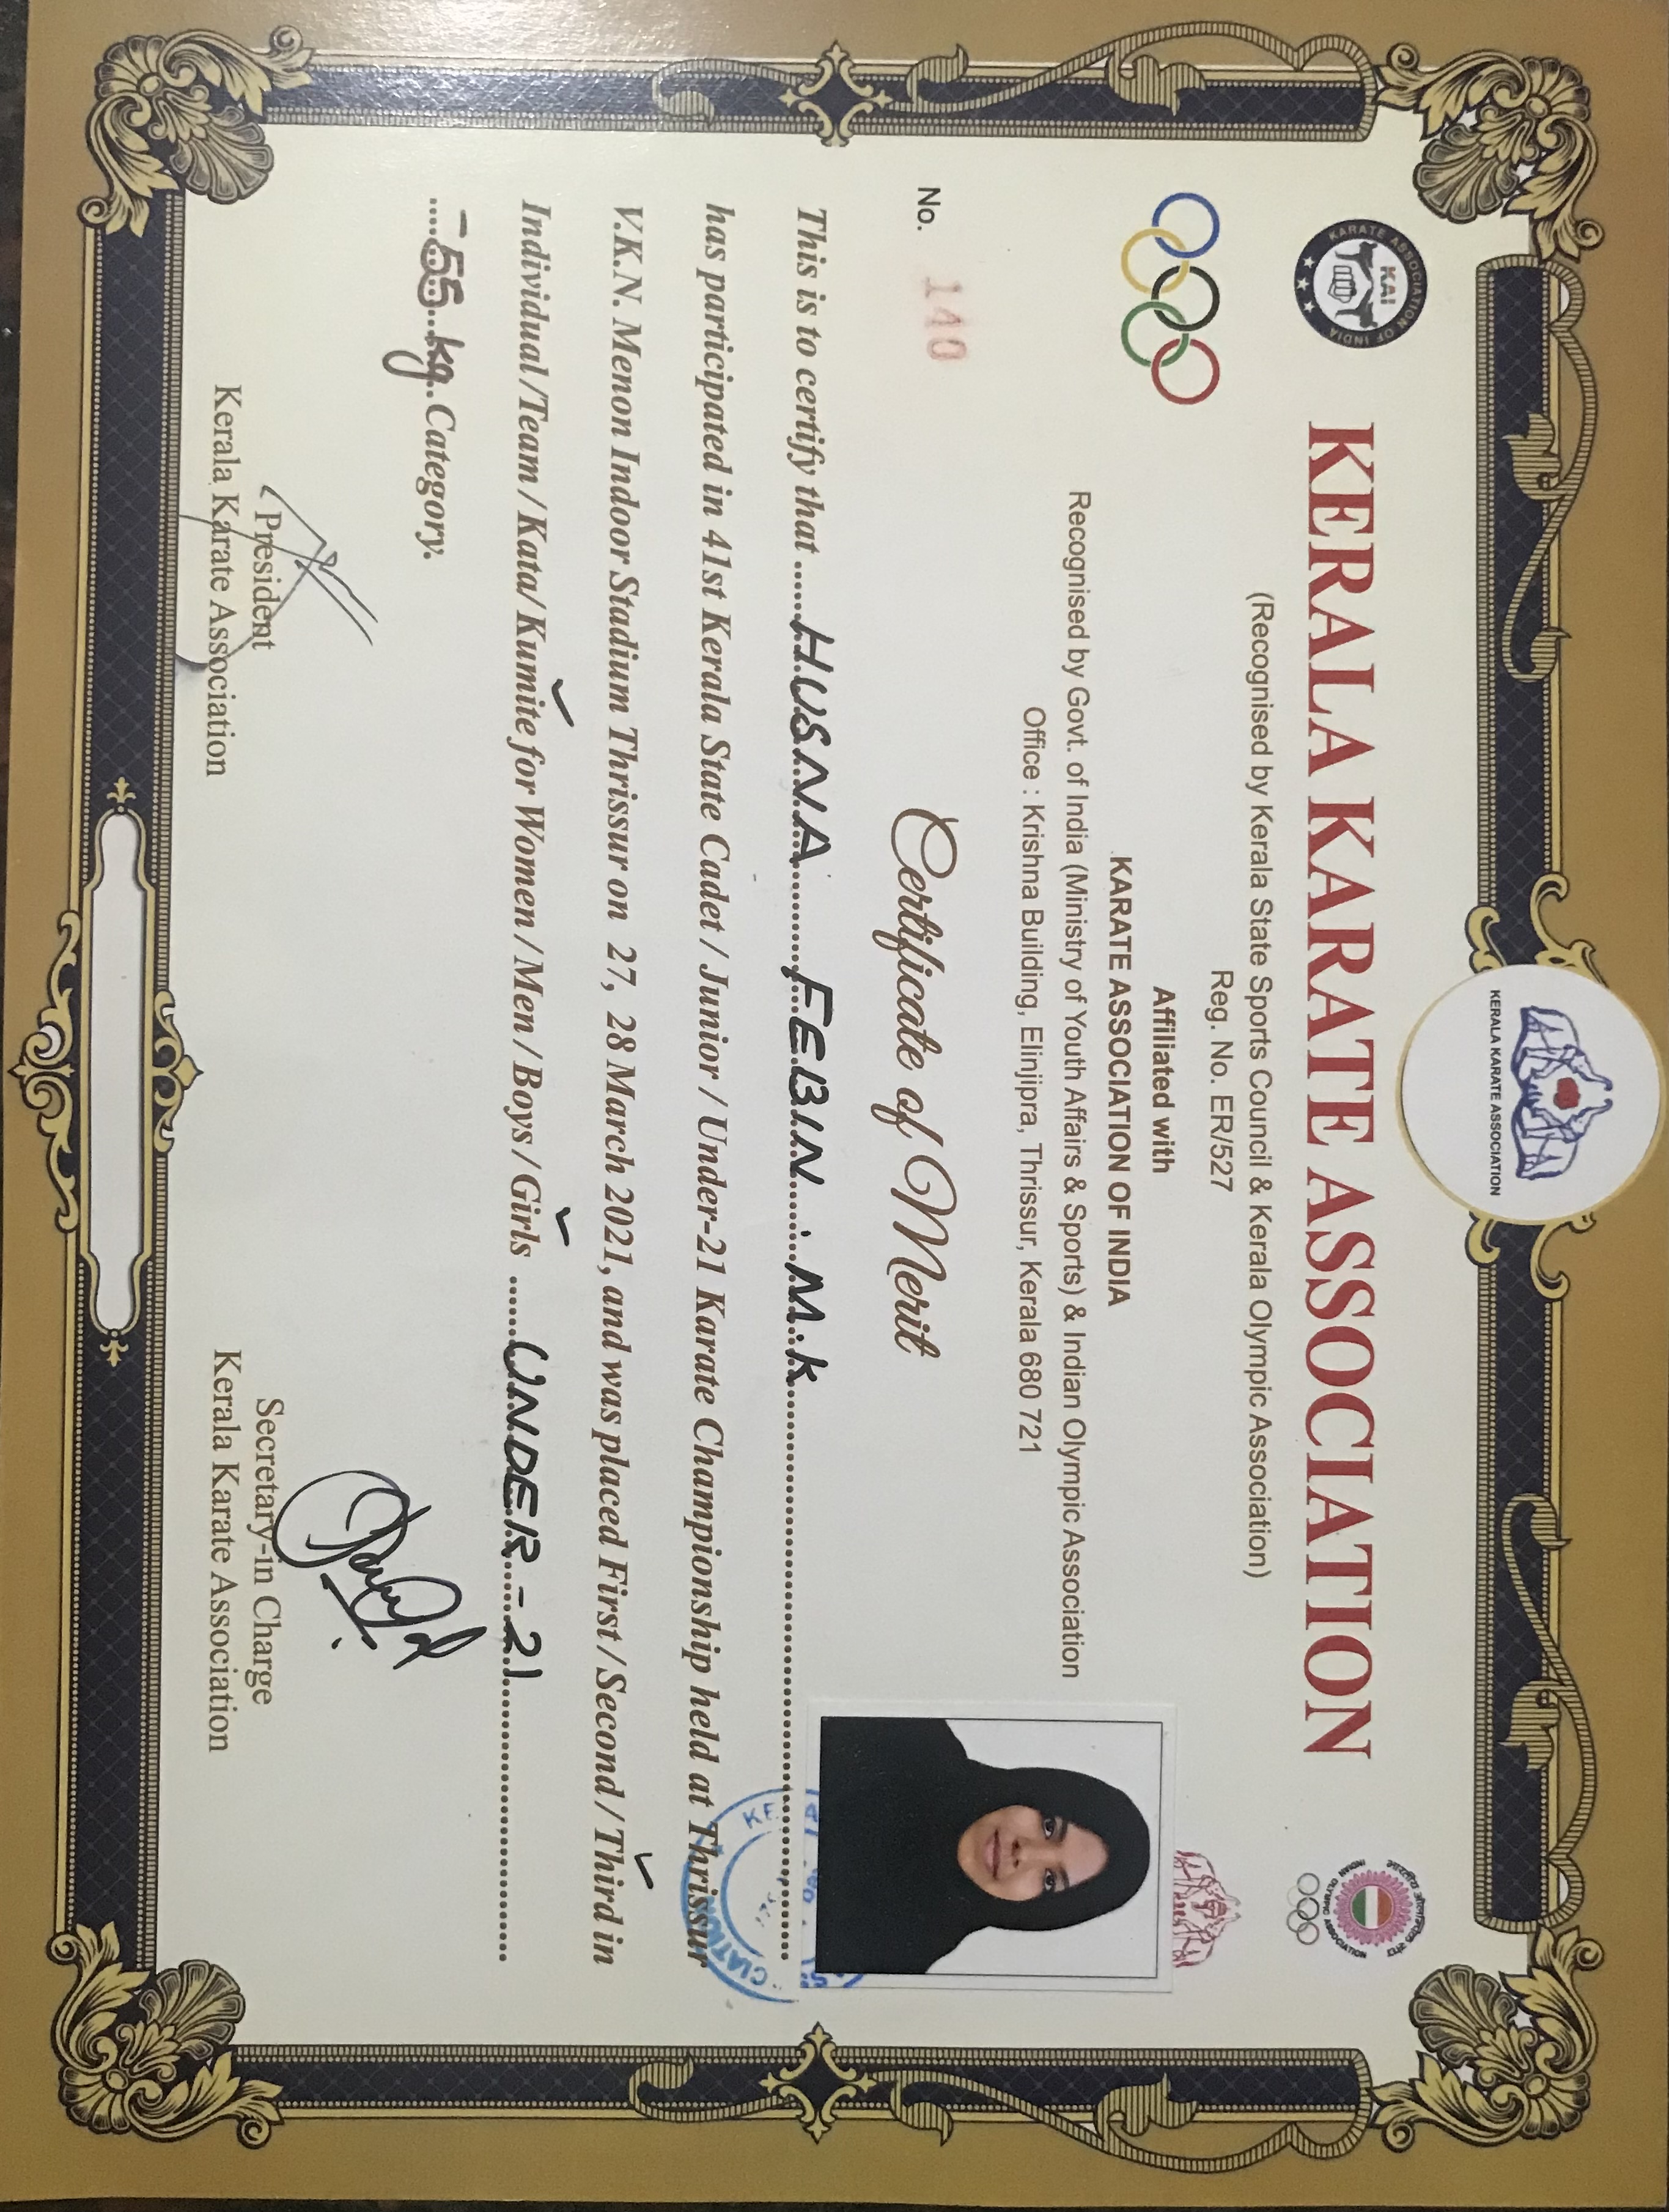 KERALA KARATE ASSOCIATION
KARATE ASSOCIATION OF INDIA
KAI
KERALA KARATE ASSOCIATION
INDIAN OLYMPIC ASSOCIATION
(Recognised by Kerala State Sports Council & Kerala Olympic Association)
Reg. No. ER/527
Affiliated with
KARATE ASSOCIATION OF INDIA
Recognised by Govt. of India (Ministry of Youth Affairs & Sports) & Indian Olympic Association
Office : Krishna Building, Elinjipra, Thrissur, Kerala 680 721
No. 140
Certificate of Merit
This is to certify that ......HUSNA FEBIN . M.K......
has participated in 41st Kerala State Cadet / Junior / Under-21 Karate Championship held at Thrissur
V.K.N. Menon Indoor Stadium Thrissur on 27, 28 March 2021, and was placed First / Second / Third in
Individual /Team / Kata/ Kumite for Women / Men / Boys / Girls ......UNDER-21......
....-55 kg. Category.
President
Kerala Karate Association
Secretary-in Charge
Kerala Karate Association